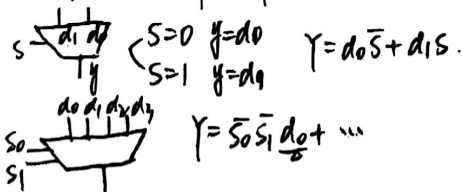 d1 d0
S
y
S=0 y=d0
S=1 y=d1
Y=d0S̄+d1S.
d0 d1 d2 d3
S0
S1
Y=S̄0S̄1d0+...